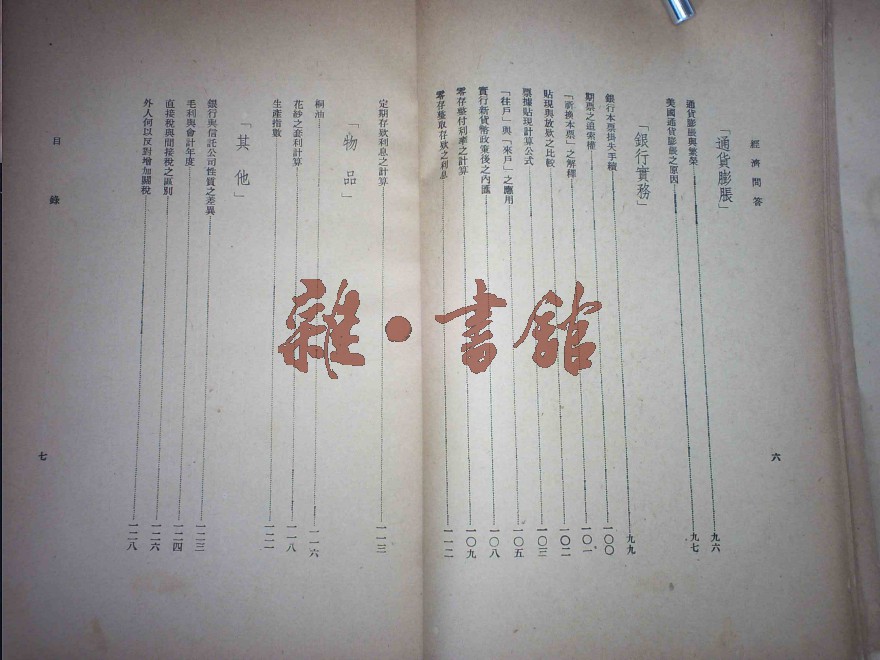 經濟問答
六
「通貨膨脹」
通貨膨脹與繁榮……九六
美國通貨膨脹之原因……九七
「銀行實務」
銀行本票掛失手續……九九
期票之追索權……一〇〇
「祈換本票」之解釋……一〇一
貼現與放款之比較……一〇二
票據貼現計算公式……一〇三
「往戶」與「來戶」之應用……一〇五
實行新貨幣政策後之內匯……一〇八
零存整付利率之計算……一〇九
零存整取存款之利息……一一二
定期存款利息之計算……一一三
「物品」
桐油……一一六
花紗之套利計算……一一八
生產指數……一二一
「其他」
銀行與信託公司性質之差異……一二三
毛利與會計年度……一二四
直接稅與間接稅之區別……一二六
外人何以反對增加關稅……一二八
目錄
七
雜·書館